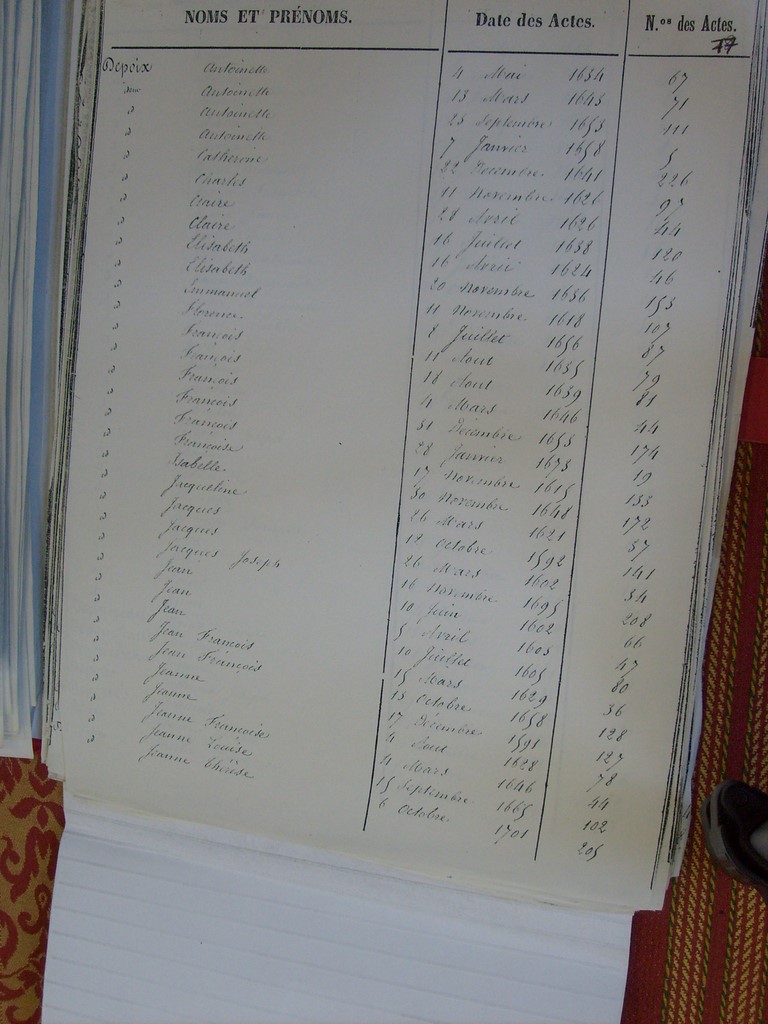 NOMS ET PRÉNOMS. Date des Actes. N.os des Actes.
77
Depoix Antoinette 4 Mai 1634 67
idem Antoinette 13 Mars 1643 71
" Antoinette 23 Septembre 1653 111
" Antoinette 7 Janvier 1658 5
" Catherine 22 Decembre 1641 226
" Charles 11 Novembre 1626 97
" Claire 28 Avril 1626 44
" Claire 16 Juillet 1638 120
" Elisabeth 16 Avril 1624 46
" Elisabeth 20 Novembre 1636 153
" Emmanuel 11 Novembre 1618 107
" Florence 8 Juillet 1656 87
" François 11 Aout 1635 79
" François 18 Aout 1639 81
" François 4 Mars 1646 44
" François 31 Décembre 1653 174
" François 28 Janvier 1673 19
" Françoise 17 Novembre 1615 133
" Isabelle 30 Novembre 1648 172
" Jacqueline 26 Mars 1621 57
" Jacques 12 Octobre 1592 141
" Jacques 26 Mars 1602 34
" Jacques Joseph 16 Novembre 1695 208
" Jean 10 Juin 1602 66
" Jean 5 Avril 1603 47
" Jean 10 Juillet 1605 80
" Jean François 15 Mars 1629 36
" Jean François 13 Octobre 1658 128
" Jeanne 17 Décembre 1591 127
" Jeanne 4 Aout 1628 78
" Jeanne Françoise 4 Mars 1646 44
" Jeanne Louise 15 Septembre 1665 102
" Jeanne Thérèse 6 Octobre 1701 205